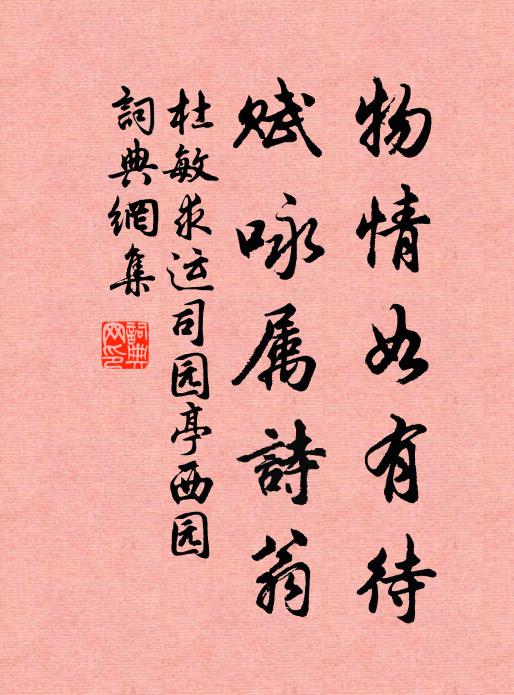 物情如有待
赋咏属詩翁
杜敏求运司园亭西园
詞典網集
詞典网印